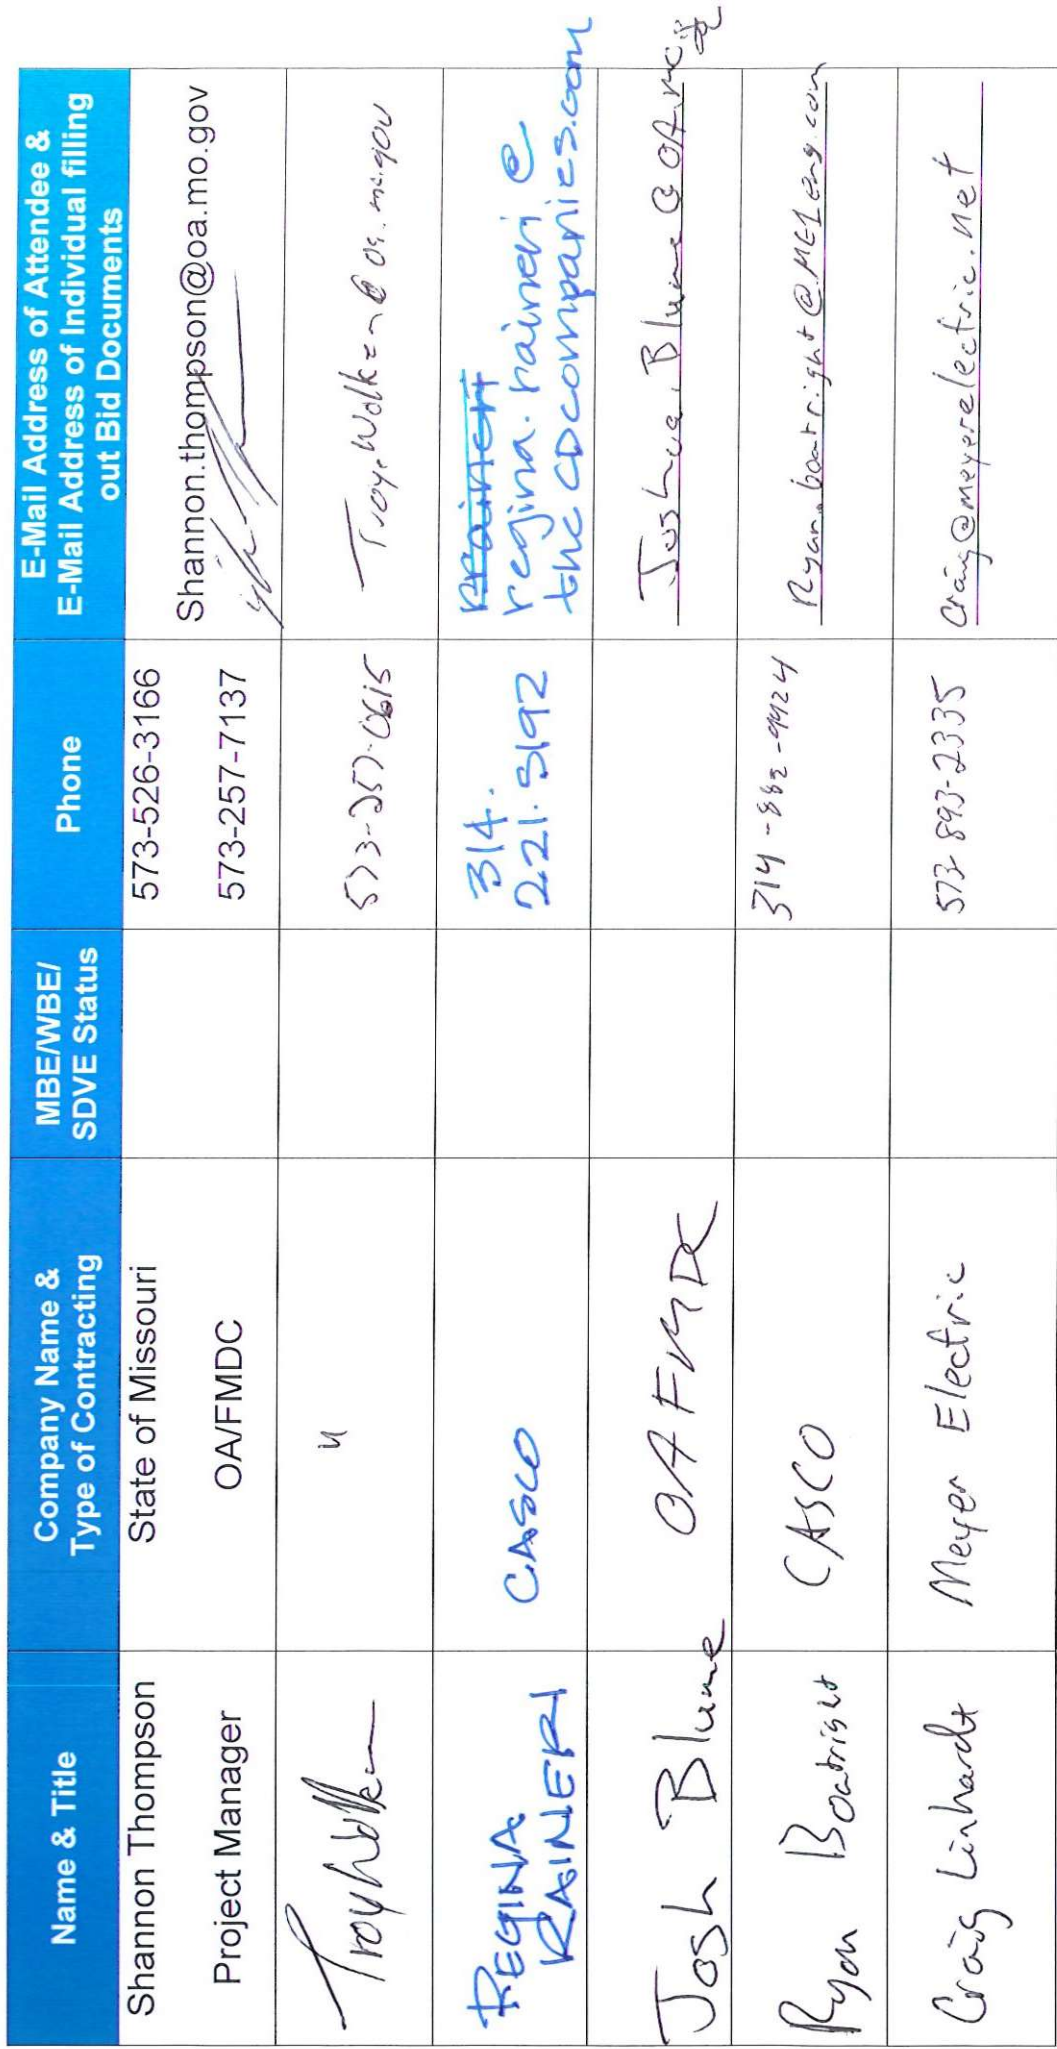 Name & Title
Company Name &
Type of Contracting
MBE/WBE/
SDVE Status
Phone
E-Mail Address of Attendee &
E-Mail Address of Individual filling
out Bid Documents
Shannon Thompson
Project Manager
State of Missouri
OA/FMDC
573-526-3166
573-257-7137
Shannon.thompson@oa.mo.gov
Troy Walker
"
573-257-0615
REGINA
RAINERI
CASCO
314.
221.5192
regina.raineri@
thecdcompanies.com
Josh Blume
OA FMDC
Joshua.Blume@OA.mo
Ryan Boatright
CASCO
Ryan.boatright@MEIeng.com
Craig Linhardt
Meyer Electric
573-893-2335
craig@meyerelectric.net